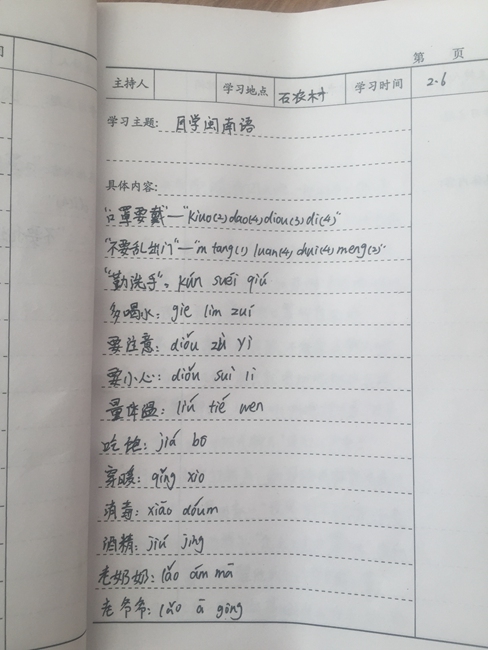 第 页
主持人 学习地点 石农村 学习时间 2.6
学习主题: 自学闽南语
具体内容:
"口罩要戴"—"kiuo(2) dao(4) diou(3) di(4)"
"不要乱出门"—"m tang(1) luan(4) chui(4) meng(2)"
"勤洗手": kún suěi qiú
多喝水: gie lim zuí
要注意: diǒu zù yì
要小心: diǒu suì li
量体温: liú tié wen
吃饱: jiá bō
穿暖: qǐng xio
消毒: xiāo dóum
酒精: jiú jing
老奶奶: lǎo ám mā
老爷爷: lǎo ā gōng